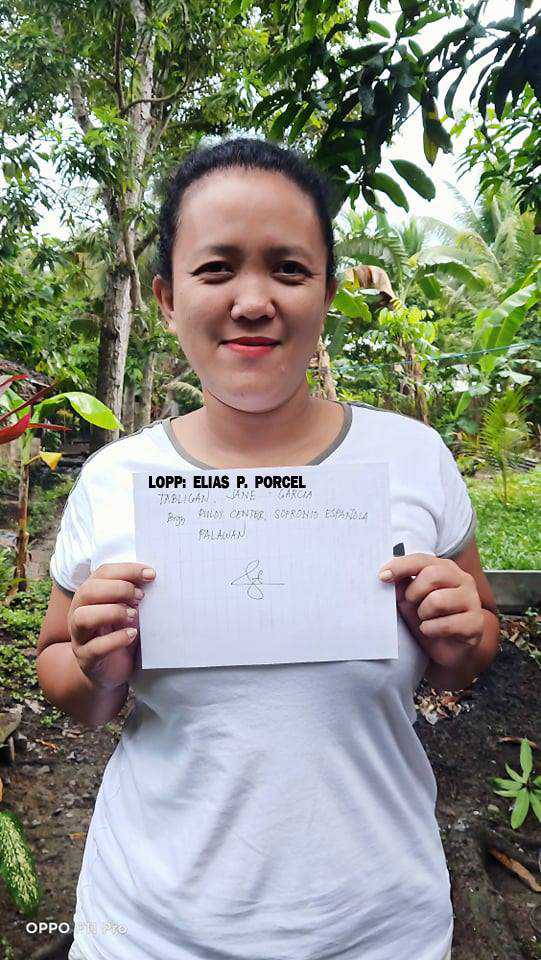 LOPP: ELIAS P. PORCEL
TABLIGAN, JANE GARCIA
Brgy PULOT CENTER, SOFRONIO ESPAÑOLA
PALAWAN
OPPO F11 Pro